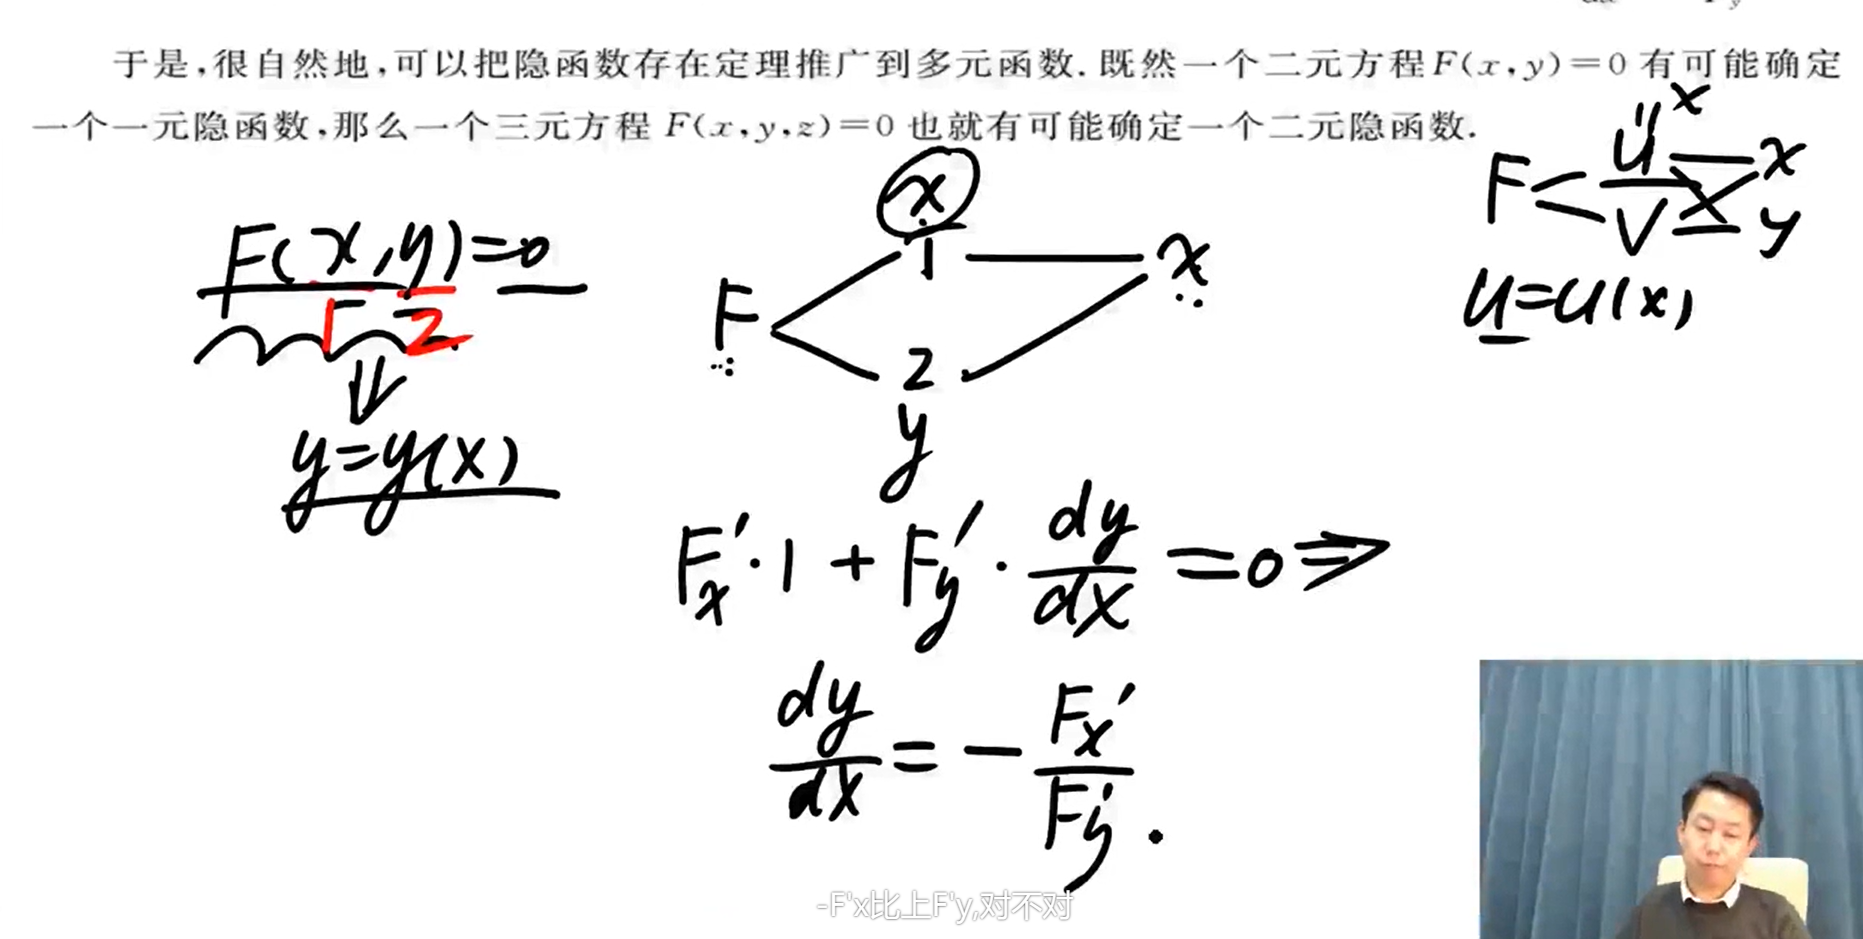 于是,很自然地,可以把隐函数存在定理推广到多元函数.既然一个二元方程F(x,y)=0 有可能确定
一个一元隐函数,那么一个三元方程 F(x,y,z)=0 也就有可能确定一个二元隐函数.
F(x,y)=0
1 2
⇓
y=y(x)
x
1
F
x
2
y
x
u
F
x
v
y
u=u(x)
F'x·1+F'y·dy/dx=0⇒
dy/dx=-F'x/F'y.
-F'x比上F'y,对不对